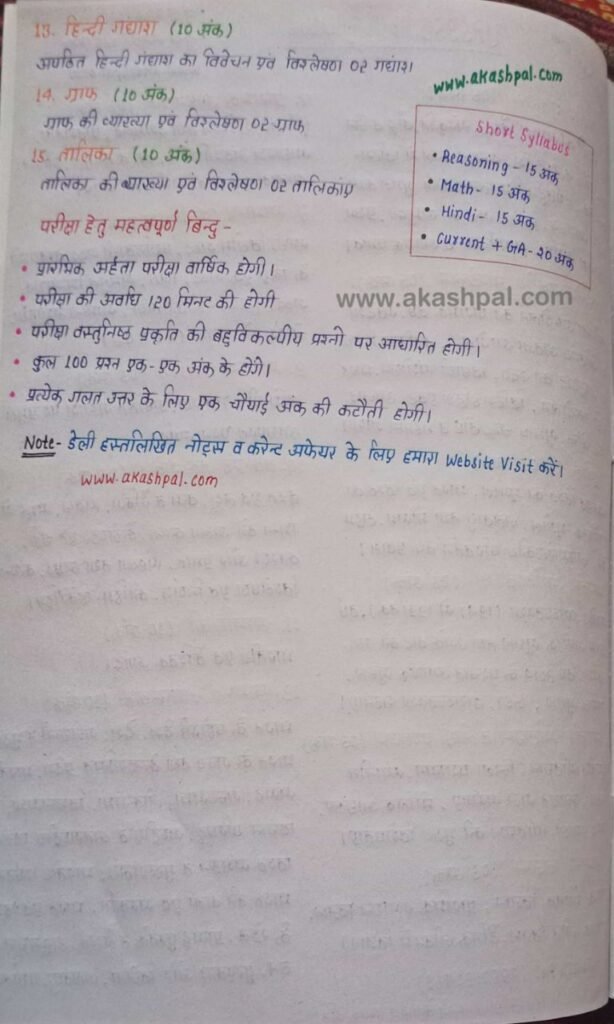 13. हिन्दी गद्यांश (10 अंक)
अपठित हिन्दी गद्यांश का विवेचन एवं विश्लेषण 02 गद्यांश।
www.akashpal.com
14. ग्राफ (10 अंक)
ग्राफ की व्याख्या एवं विश्लेषण 02 ग्राफ
15. तालिका (10 अंक)
तालिका की व्याख्या एवं विश्लेषण 02 तालिकाए
Short Syllabus
• Reasoning - 15 अंक
• Math - 15 अंक
• Hindi - 15 अंक
• Current + GA - 20 अंक
परीक्षा हेतु महत्वपूर्ण बिन्दु -
• प्रारंभिक अर्हता परीक्षा वार्षिक होगी।
• परीक्षा की अवधि 120 मिनट की होगी
www.akashpal.com
• परीक्षा वस्तुनिष्ठ प्रकृति की बहुविकल्पीय प्रश्नो पर आधारित होगी।
• कुल 100 प्रश्न एक-एक अंक के होंगे।
• प्रत्येक गलत उत्तर के लिए एक चौथाई अंक की कटौती होगी।
Note- डेली हस्तलिखित नोट्स व करेन्ट अफेयर के लिए हमारा Website Visit करें।
www.akashpal.com